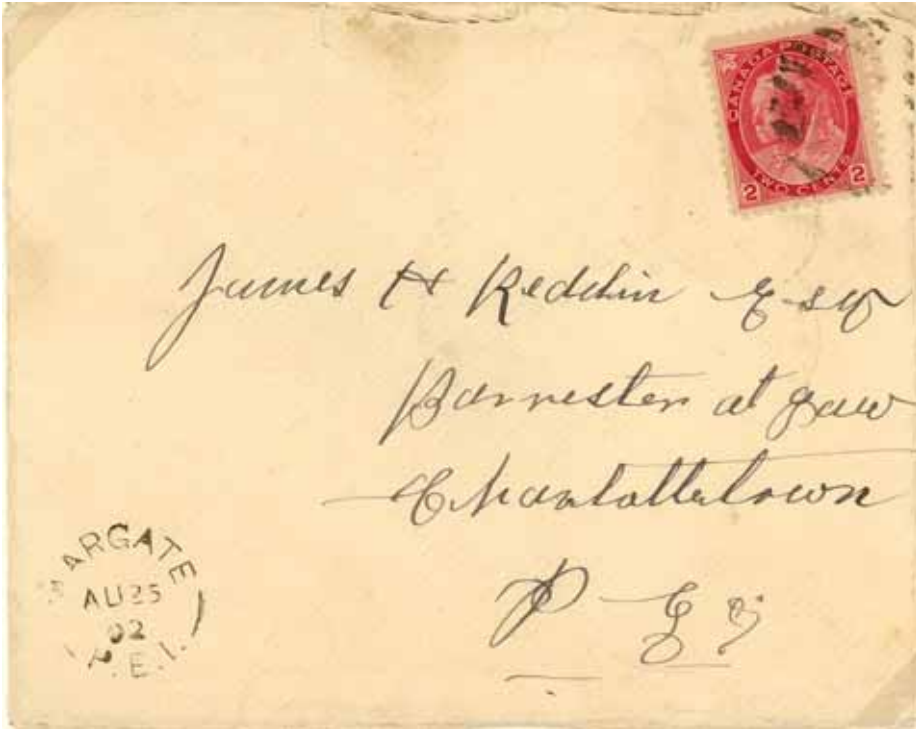 CANADA POSTAGE
TWO CENTS
2 2
James H Reddin Esqr
Barrister at Law
Charlottetown
P E I
MARGATE
AU 25
02
P.E.I.